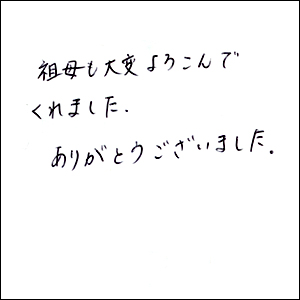 祖母も大変よろこんで
くれました.
ありがとうございました.